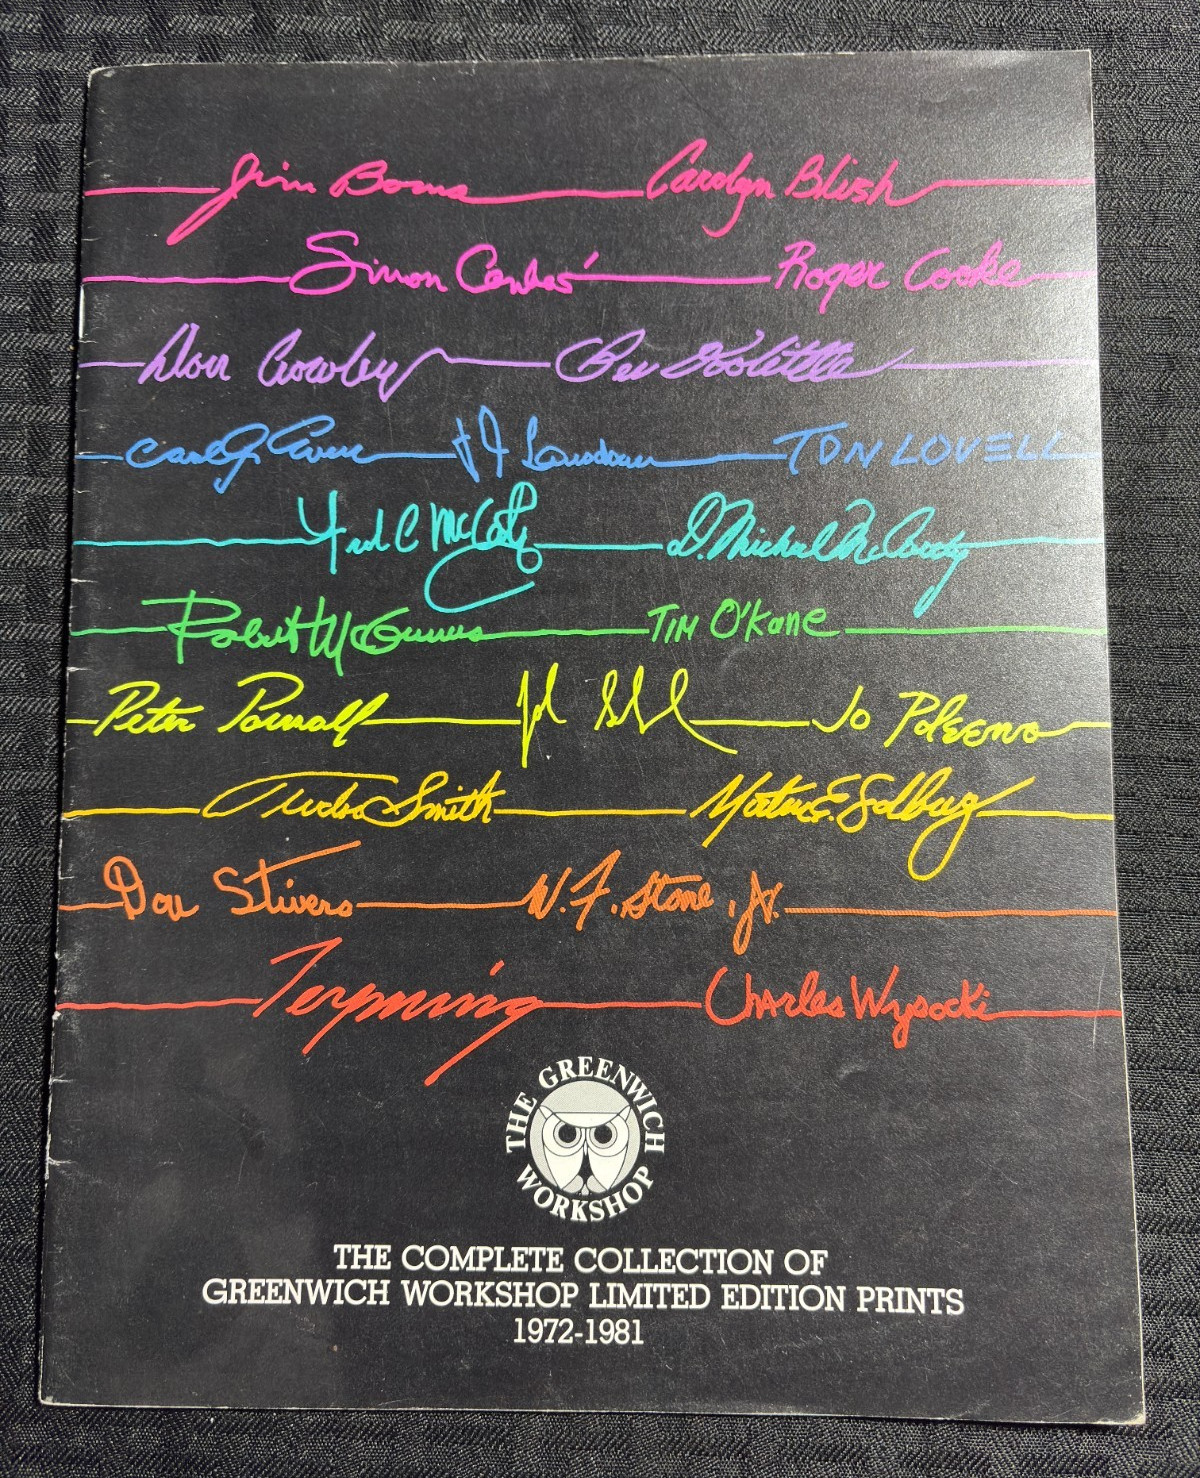 Jim Boms Carolyn Blish
Simon Combes Roger Cooke
Don Crowley Bev Doolittle
Carl J. Evers J Lonsdown TOM LOVELL
Fred C McCarthy D. Michael McCarthy
Robert McGinnis TIM O'Kane
Peter Parnall John Schoenherr Jo Polseno
Tucker Smith Morten E. Solberg
Don Stivers W. F. Stone, Jr.
Terpning Charles Wysocki
THE GREENWICH
WORKSHOP
THE COMPLETE COLLECTION OF
GREENWICH WORKSHOP LIMITED EDITION PRINTS
1972-1981